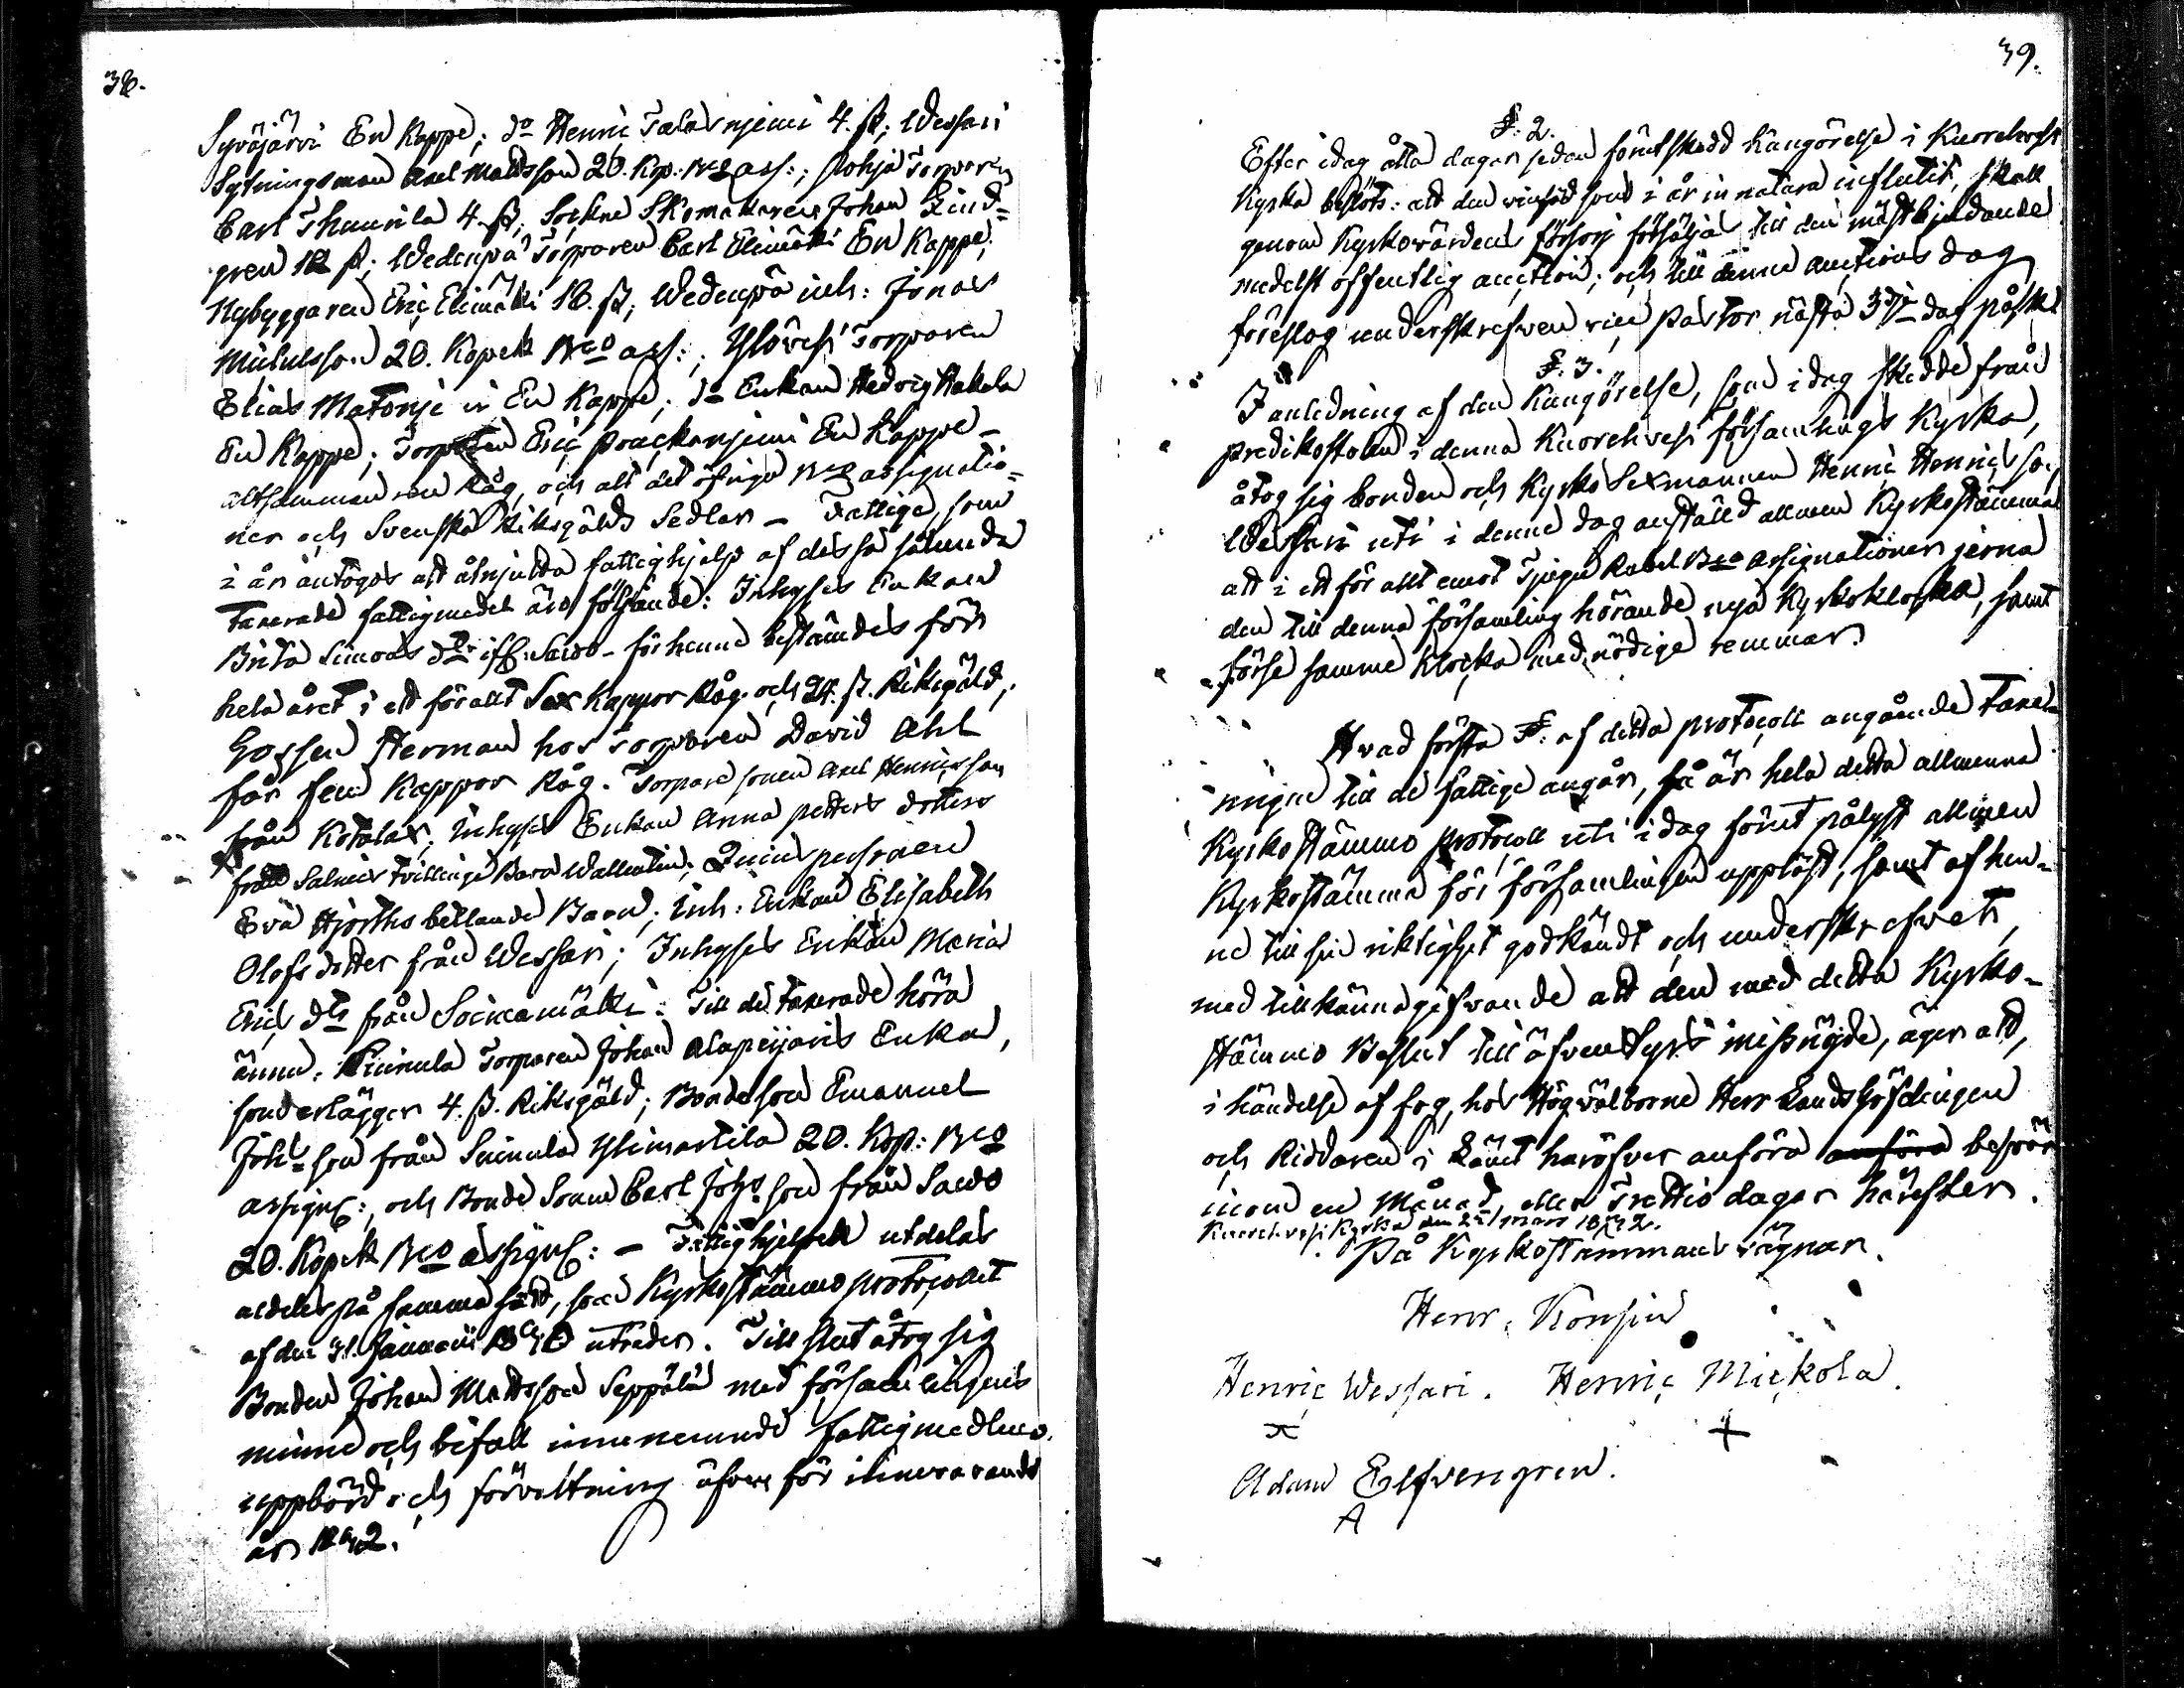 38.
Syväjärvi En Kappe; do Henric Talasniemi 4. ß; Wessari
Sytningsman Axel Mattsson 20. Kop. Bco ass:; Pohja Torparen
Carl Thuurila 4. ß; Sockne Skomakaren Johan Lind=
gren 12 ß; Wedenpä Torparen Carl Elimäki En Kappe;
Nybyggaren Eric Elimäki 16. ß; Wedenpä inh: Jonas
Michelsson 20. Kopek Bco ass:; Ylövesi Torparen
Elias Matonje in En Kappe; do Enkan Hedvig Hakala
En Kappe; Torparen Eric Prackaniemi En Kappe –
altsamman ren Råg, och alt det öfriga Bco assignatio=
ner och Svenska Riksgälds Sedlar – Fattige, som
i år antogos att åtnjutta fattighjelp af dessa sålunda
taxerade fattigmedel äro följande: Inhyses Enkan
Brita Simons dr ifr: Savo – för henne bestämdes för
hela året i ett för allt Sex Kappor Råg och 24. ß. Riksgäld,
Gossen Herman hos Torparen David Ahl
får fem Kappor Råg. Torpare sonen Axel Henricsson
från Kotala; Inhyses Enkan Anna Petters dotters
från Salmis tvillinge Barn Wallentin; Qvinspersonen
Eva Hjorths bettlande Barn; Inh: Enkan Elisabeth
Olofs dotter från Wessari; Inhyses Enkan Maria
Erics dr från Soinamäki: Till de taxerade höra
ännu: Torparen Johan Alapeijaris Enka,
som erlägger 4. ß. Riksgäld; Bondeson Emanuel
Johs son från Suinula Ylimartila 20. Kop: Bco
assign:, och Bonde Sonen Carl Johs son från Savo
20. Kopek Bco assign: – Fattighjelpen utdelas
aldeles på samma sätt, som Kyrkostämmo protocollet
af den 31. Januarii 1840 utreder. Till slut åtog sig
Bonden Johan Mattsson Seppälä med församlingens
minne och bifall innenemnde fattigmedlens
uppbörd och förvaltning äfven för innevarande
år 1842.
39.
§. 2.
Efter idag åtta dagar sedan förutskedd Kungörelse i Kuorehvesi
Kyrka beslöts: att den som i år in natura influtit, skall
genom Kyrkovärdens försorj försäljas till den mäst bjudande
medelst offentlig auction; och till denne auctions dag
föreslog underskrefven vice Pastor nästa 3dje dag påsk.
§. 3.
I anledning af den Kungörelse, som idag skedde från
predikostolen i denna Kuorehvesi församlings Kyrka,
åtog sig bonden och Kyrko Sexmannen Henric Henricsson
Wessari uti i denne dag anställd allmen Kyrkostämma
att i ett för allt emot Tjugu Rubel Bco Assignationer jerna
den till denna församling hörande nya Kyrkoklocka, samt
förse samme Klocka med nödige remmar.
Hvad första §. af detta protocoll angående Taxe=
ringen till de fattige angår, så är hela detta allmenna
Kyrkostämmo protocoll uti idag förut pålyst allmen
Kyrkostämma för församlingen uppläst, samt af hen=
ne till sin riktighet godkändt och underskrefvet,
med tillkännagifvande att den med detta Kyrko=
stämmo Beslut till äfventyrs missnögde, äger att,
i händelse af fog, hos Högvälborne Herr Landshöfdingen
och Riddaren i Länet häröfver anföra anföra besvär
inom en Månad, eller Trettio dagar härefter.
Kuorehvesi Kyrka den Mars 1842.
På Kyrkostämmans vägnar.
Henr. Konsin
Henric Wessari. Henric Mickola.
x +
Adam Elfvengren.
A